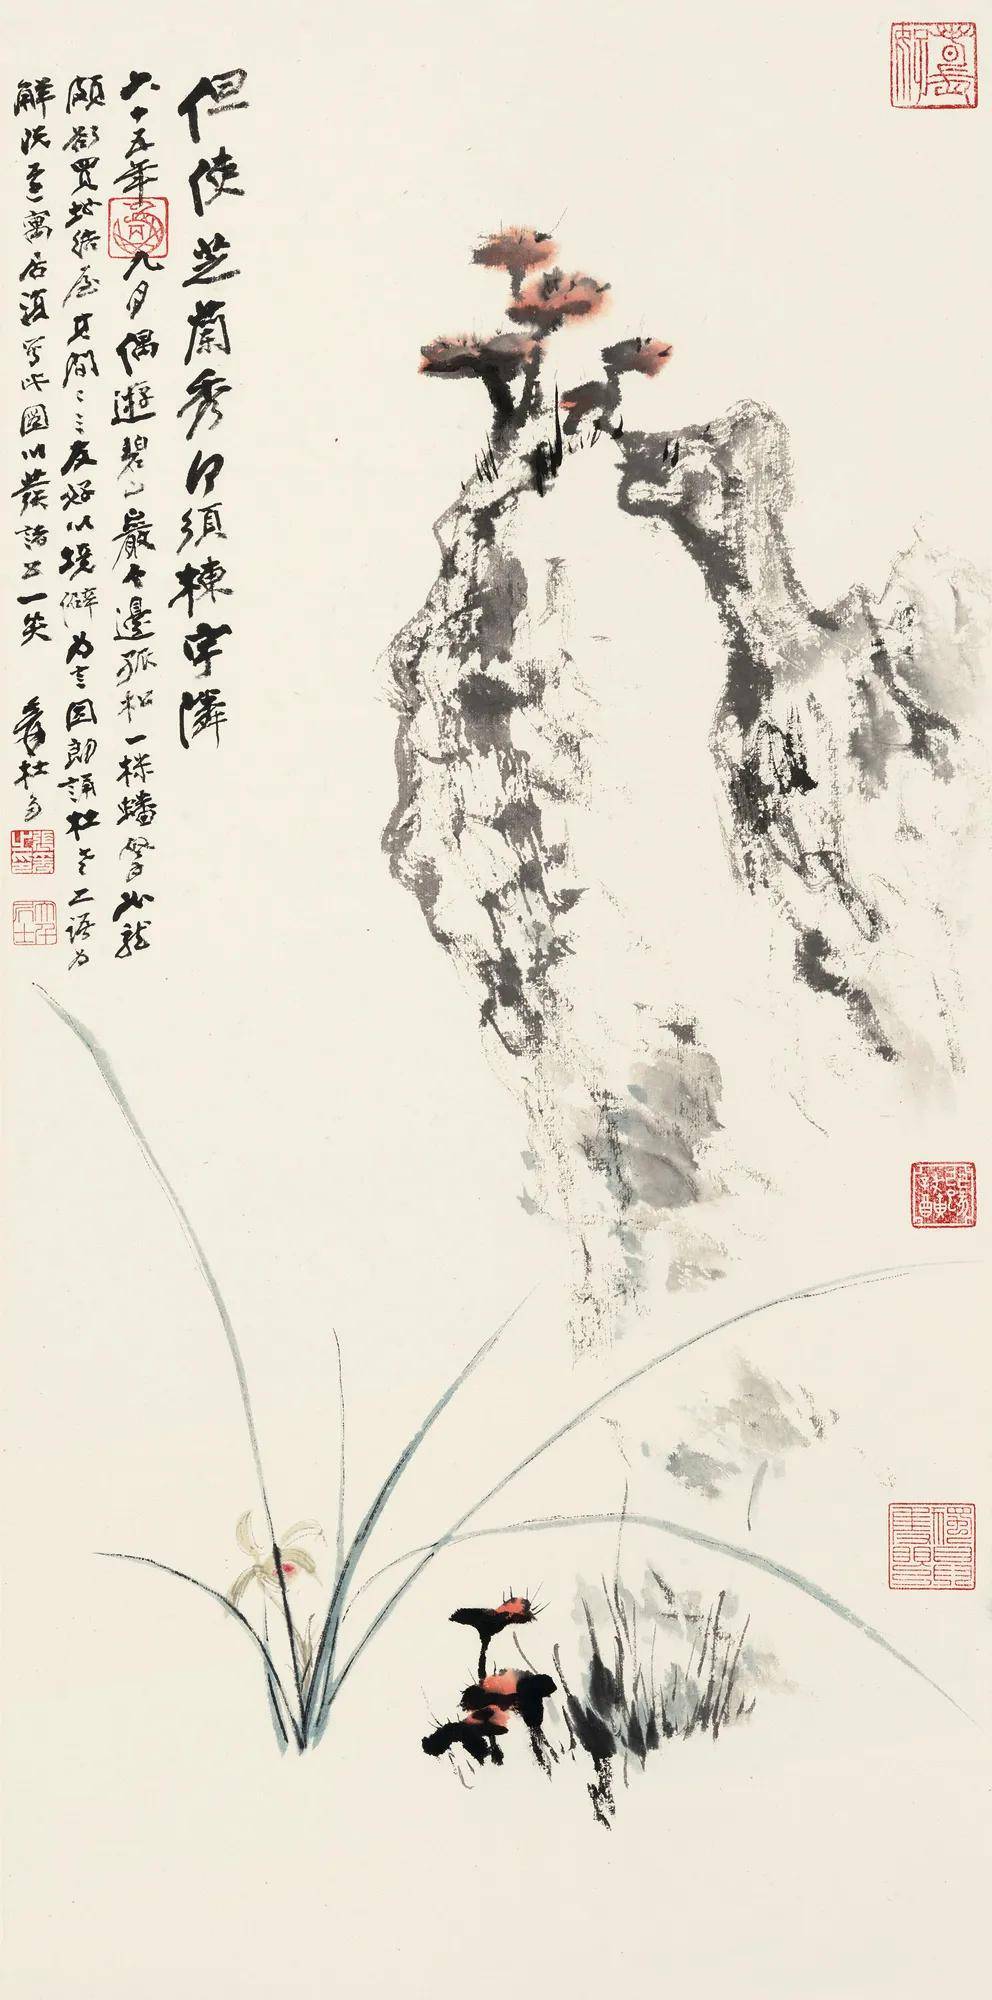 但使芝蘭秀何須棟宇隣
六十五年九月偶遊碧山巖今邊孤松一株蟠㧓如龍
頗欲買地結屋其間二三友好以境僻為言因朗誦杜老二語為
解淡還寓居漫寫此圖以發諸公一笑
爰杜多